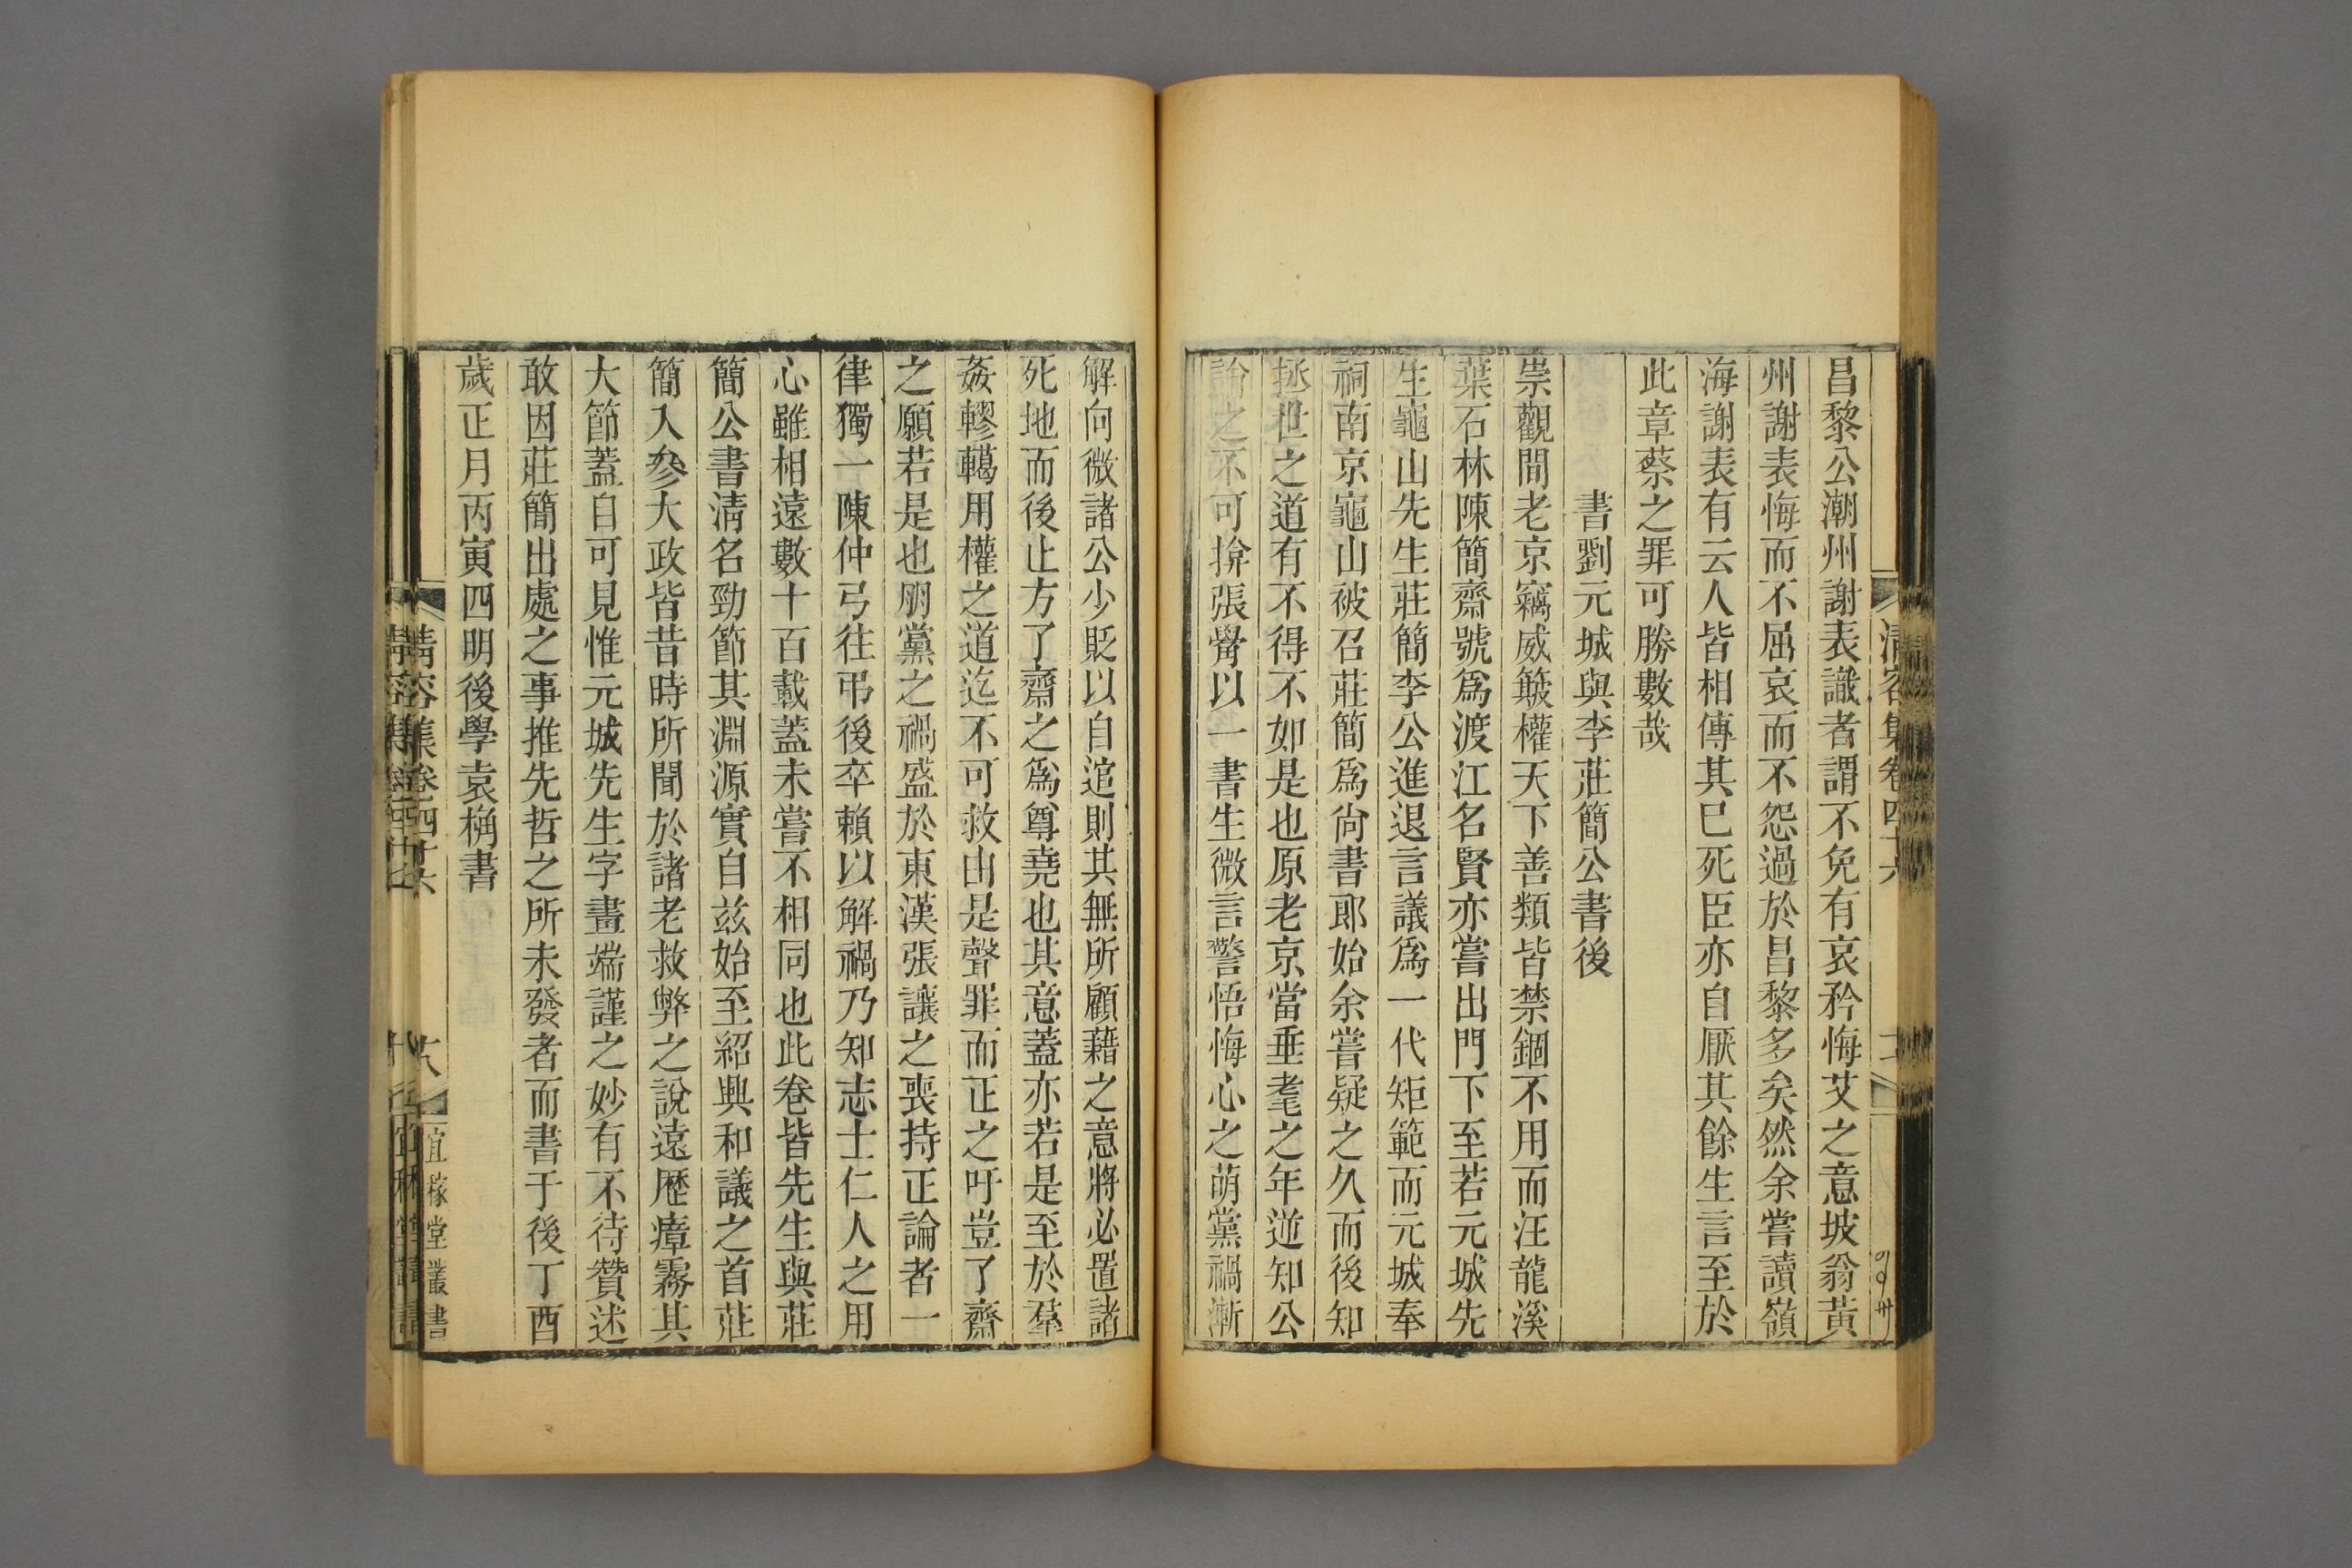 昌黎公潮州謝表識者謂不免有哀矜悔艾之意坡翁黃
州謝表悔而不屈哀而不怨過於昌黎多矣然余嘗讀嶺
海謝表有云人皆相傳其已死臣亦自厭其餘生言至於
此章蔡之罪可勝數哉
書劉元城與李莊簡公書後
崇觀間老京竊威簸權天下善類皆禁錮不用而汪龍溪
葉石林陳簡齋號爲渡江名賢亦嘗出門下至若元城先
生龜山先生莊簡李公進退言議爲一代矩範而元城奉
祠南京龜山被召莊簡爲尙書郎始余嘗疑之久而後知
拯世之道有不得不如是也原老京當垂耄之年逆知公
論之不可揜張觷以一書生微言警悟悔心之萌黨禍漸
解向微諸公少貶以自逭則其無所顧藉之意將必置諸
死地而後止方了齋之爲尊堯也其意蓋亦若是至於羣
姦轇轕用權之道迄不可救由是聲罪而正之吁豈了齋
之願若是也朋黨之禍盛於東漢張讓之喪持正論者一
律獨一陳仲弓往弔後卒賴以解禍乃知志士仁人之用
心雖相遠數十百載蓋未嘗不相同也此卷皆先生與莊
簡公書淸名勁節其淵源實自兹始至紹興和議之首莊
簡入參大政皆昔時所聞於諸老救弊之說遠歷瘴霧其
大節蓋自可見惟元城先生字畫端謹之妙有不待贊述
敢因莊簡出處之事推先哲之所未發者而書于後丁酉
歲正月丙寅四明後學袁桷書
清容集卷四十六
宜稼堂叢書